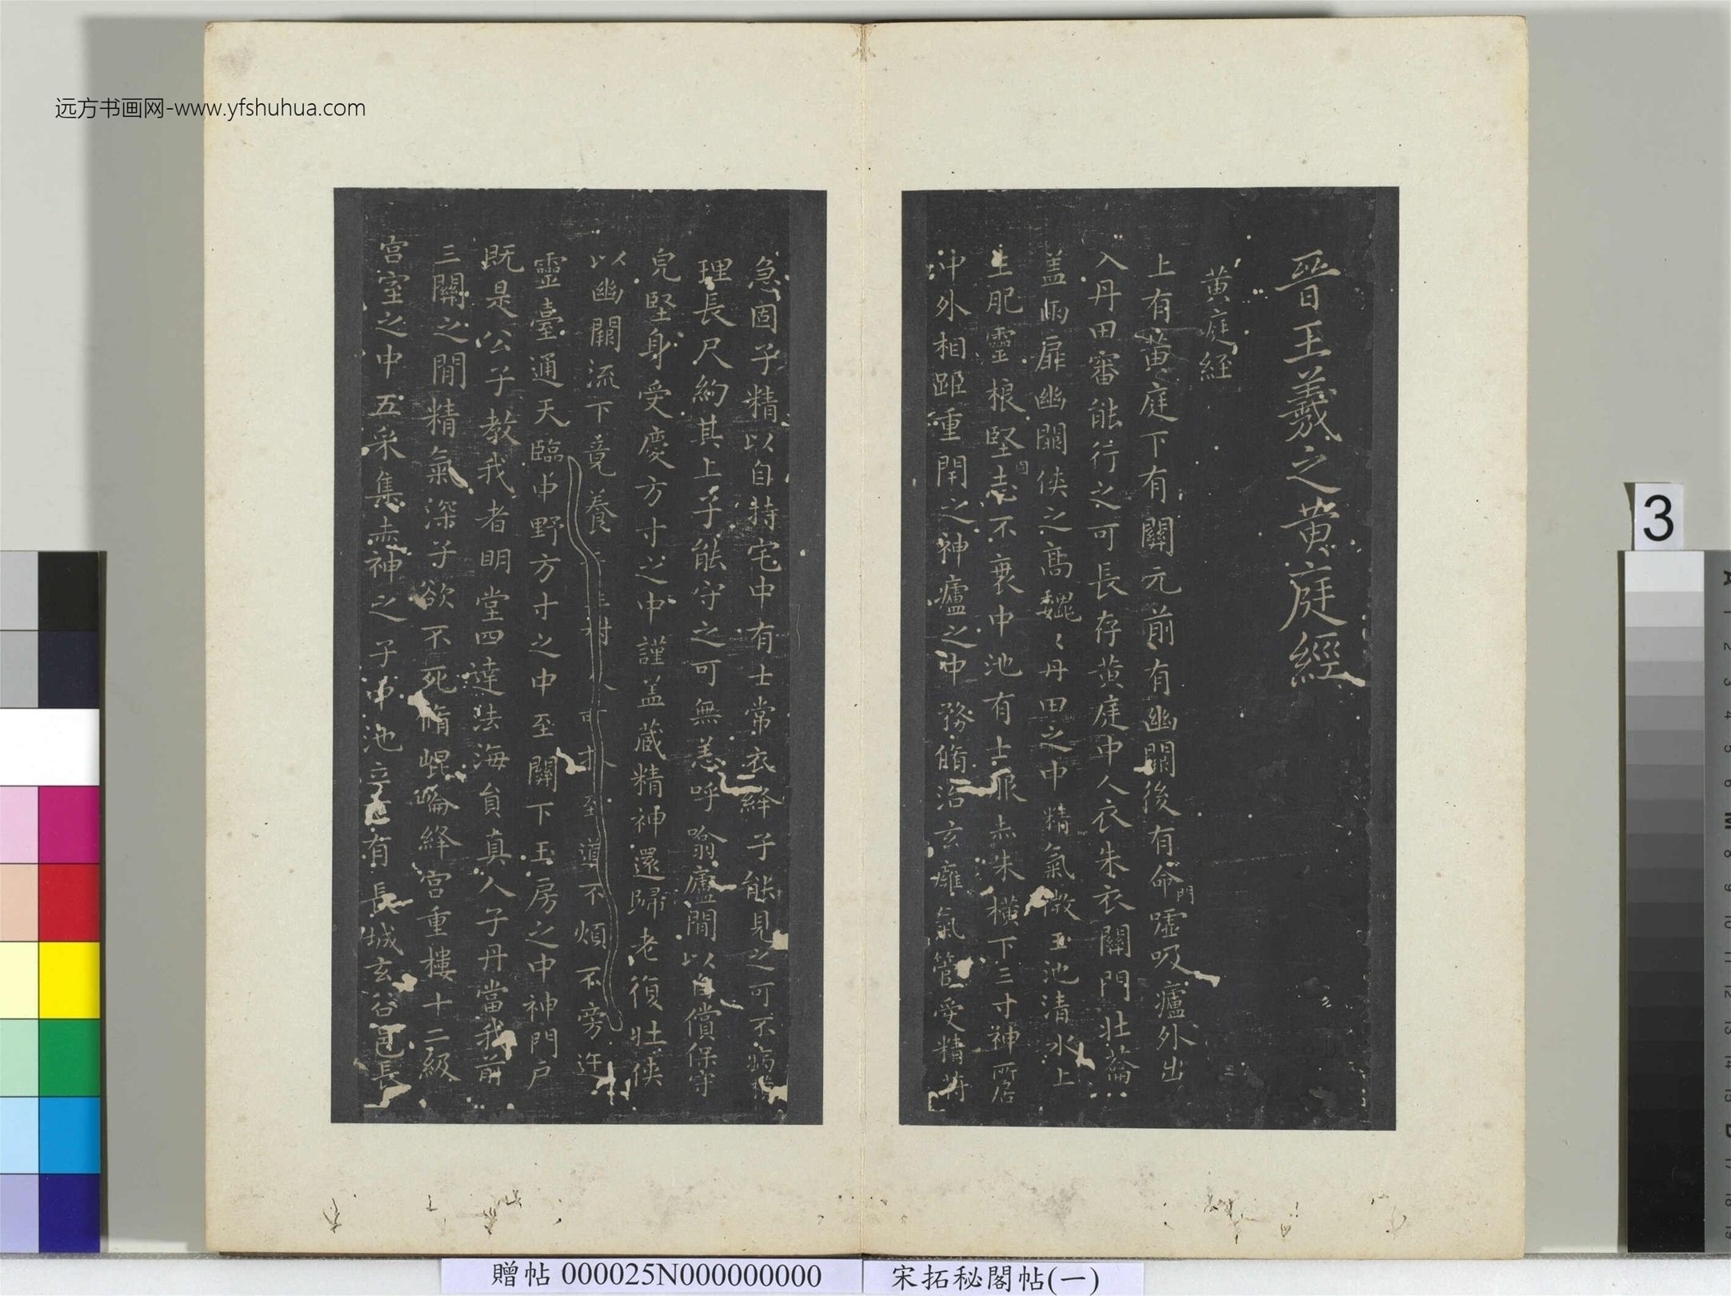 远方书画网-www.yfshuhua.com
晉王羲之黄庭經
黄庭經
上有黄庭下有關元前有幽闕後有命門嘘吸廬外出
入丹田審能行之可長存黄庭中人衣朱衣關門壯蘥
盖兩扉幽闕俠之髙魏〻丹田之中精氣微玉池清水上
生肥靈根堅固志不衰中池有士服赤朱横下三寸神所居
中外相距重閉之神廬之中務脩治玄癰氣管受精符
急固子精以自持宅中有士常衣絳子能見之可不病横
理長尺約其上子能守之可無恙呼噏廬間以自償保守
皃堅身受慶方寸之中謹盖藏精神還歸老復壯俠
以幽闕流下竟養樹可至道不煩不旁迕
靈臺通天臨中野方寸之中至關下玉房之中神門户
既是公子教我者明堂四達法海員真人子丹當我前
三關之間精氣深子欲不死脩崐崘絳宫重樓十二級
宫室之中五采集赤神之子中池立有長城玄谷邑長
3
贈帖 000025N000000000
宋拓秘閣帖(一)